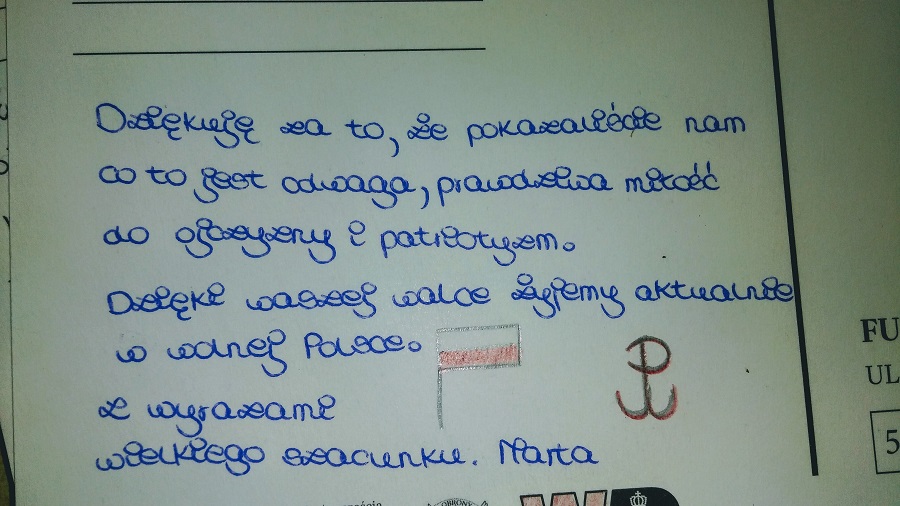 Dziękuję za to, że pokazaliście nam
co to jest odwaga, prawdziwa miłość
do ojczyzny i patriotyzm.
Dzięki waszej walce żyjemy aktualnie
w wolnej Polsce.
Z wyrazami
wielkiego szacunku. Marta
FU
UL
5
OBRONY